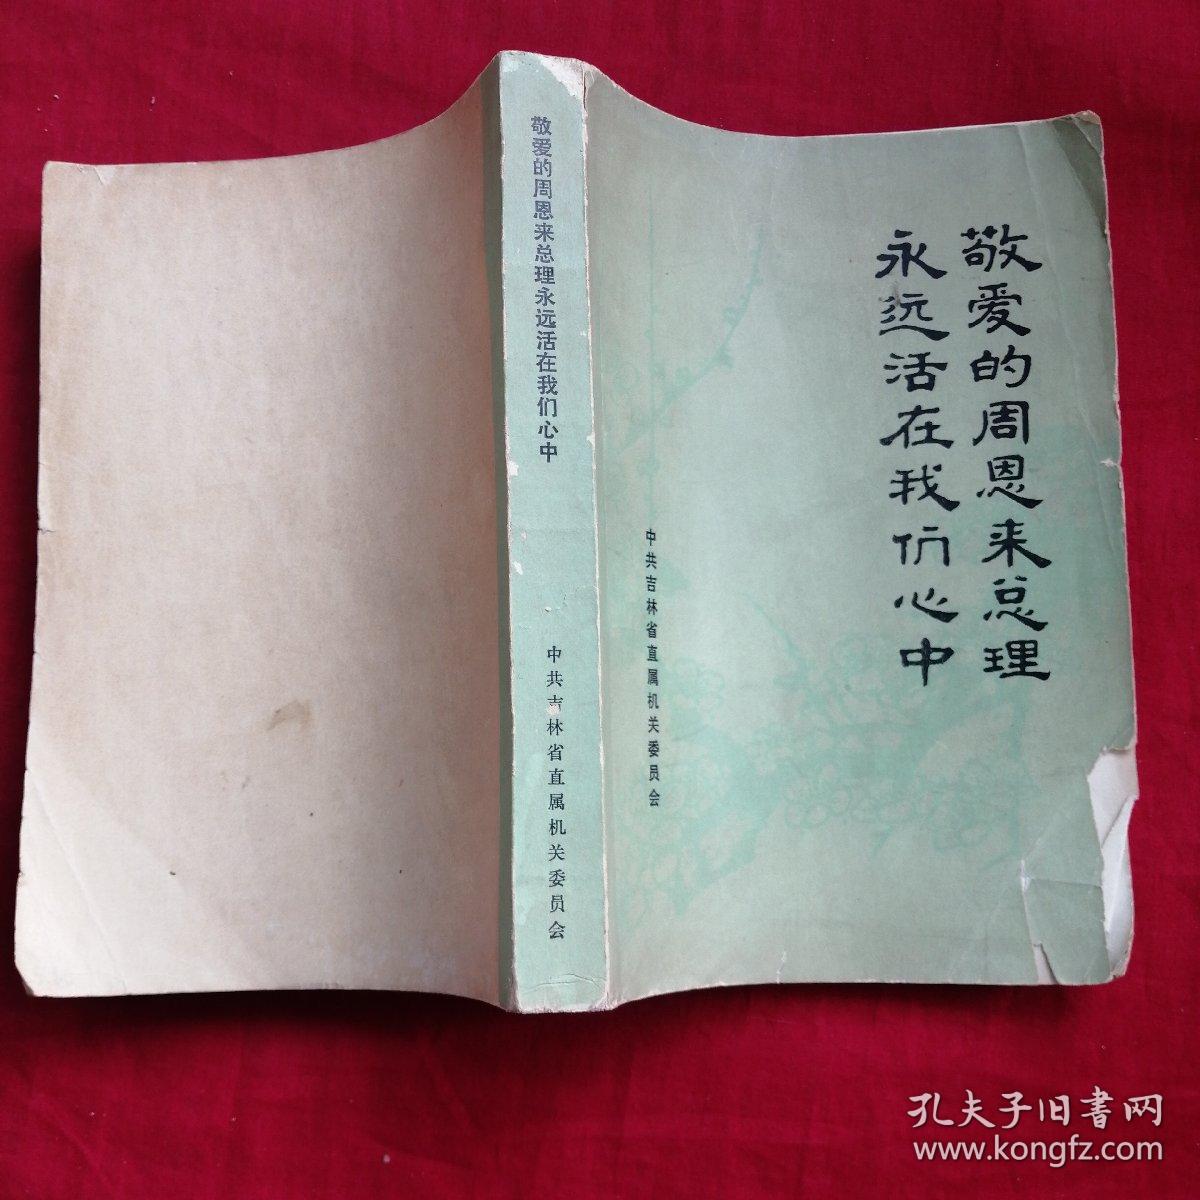 敬爱的周恩来总理
永远活在我们心中
中共吉林省直属机关委员会
敬爱的周恩来总理永远活在我们心中
中共吉林省直属机关委员会
孔夫子旧書网
www.kongfz.com